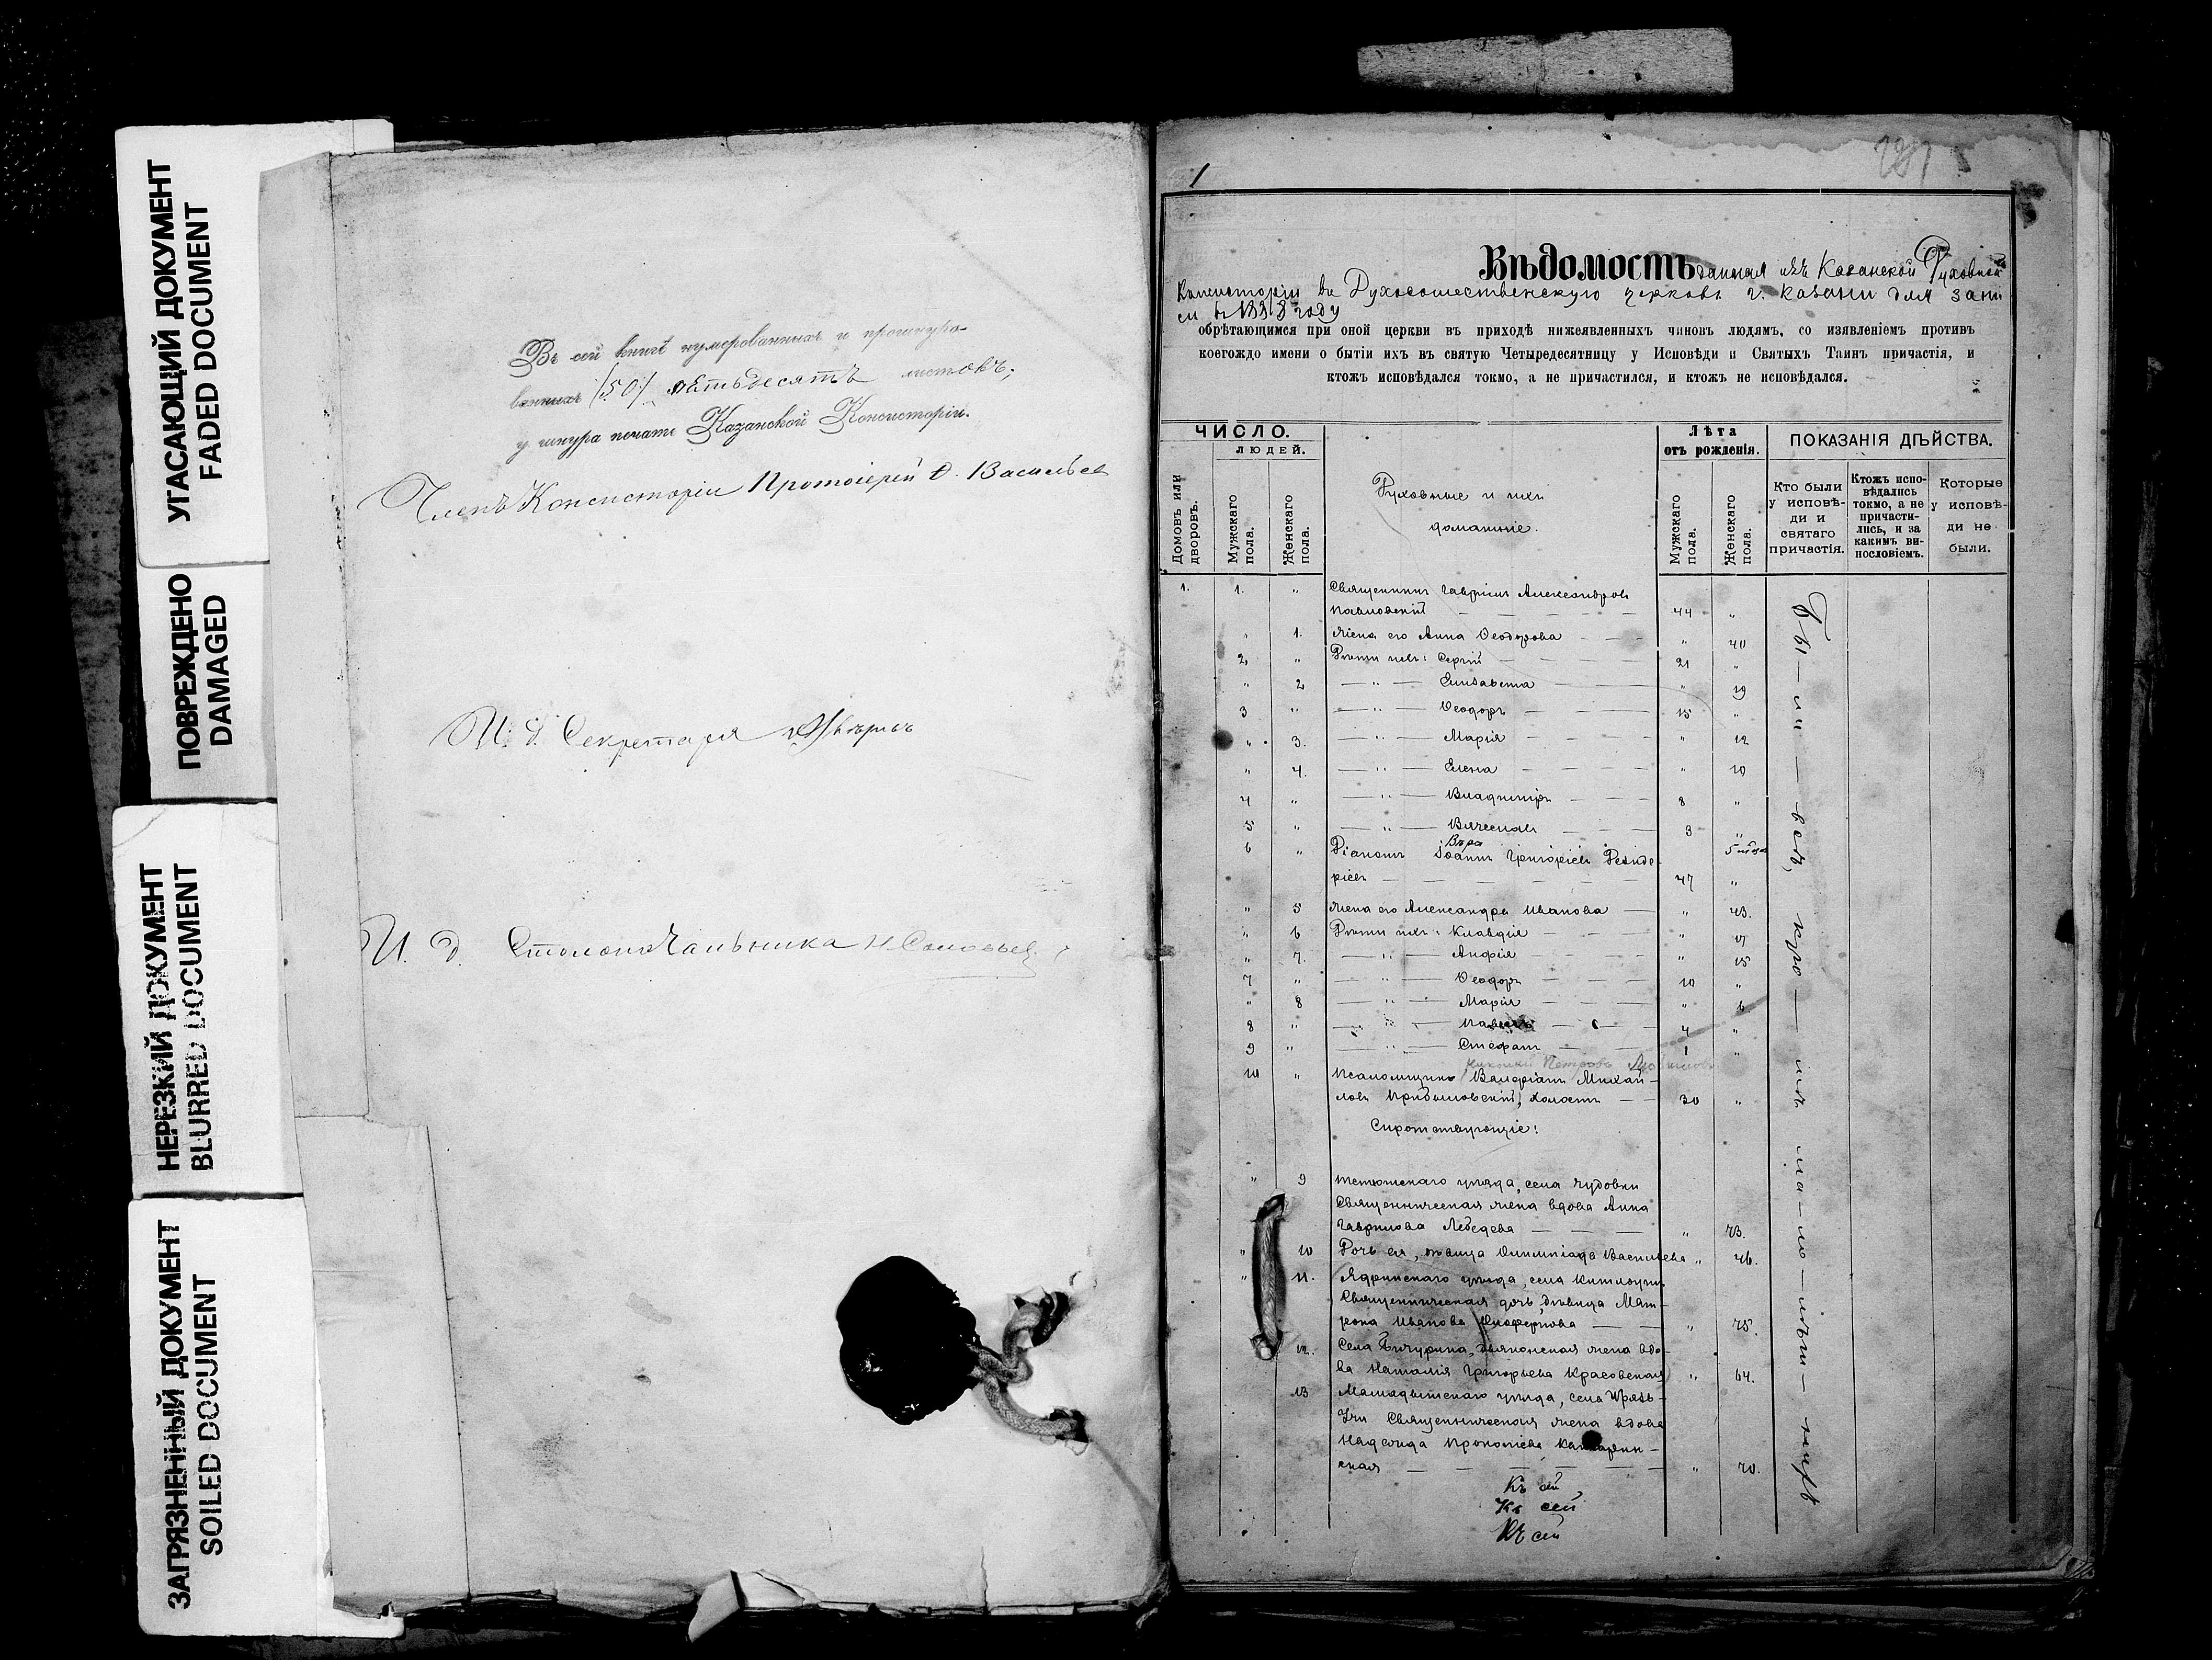 УГАСАЮЩИЙ ДОКУМЕНТ
FADED DOCUMENT
ПОВРЕЖДЕНО
DAMAGED
НЕРЕЗКИЙ ДОКУМЕНТ
BLURRED DOCUMENT
ЗАГРЯЗНЕННЫЙ ДОКУМЕНТ
SOILED DOCUMENT
Въ сей книгѣ нумерованныхъ и прошнуро-
ванныхъ (50) пятьдесятъ листовъ;
у шнура печать Казанской Консисторіи.
Членъ Консисторіи Протоіерей Ѳ. Васильев
И. д. Секретаря
И. д. Столоначальника Н. Соловьев
1
Вѣдомость данная изъ Казанской Духовной
Консисторіи въ Духосошественскую церковь г. Казани для запи
си въ 1898 году
обрѣтающимся при оной церкви въ приходѣ нижеявленныхъ чиновъ людямъ, со изявленіемъ противъ
коегождо имени о бытіи ихъ въ святую Четыредесятницу у Исповѣди и Святыхъ Таинъ причастія, и
ктожъ исповѣдался токмо, а не причастился, и ктожъ не исповѣдался.
ЧИСЛО.
ЛЮДЕЙ.
Домовъ или дворовъ.
Мужскаго пола.
Женскаго пола.
Духовные и ихъ
домашніе.
Лѣта
отъ рожденія.
Мужскаго пола.
Женскаго пола.
ПОКАЗАНІЯ ДѢЙСТВА.
Кто были у исповѣди и святаго причастія.
Ктожъ исповѣдались токмо, а не причастились, и за какимъ винословіемъ.
Которые у исповѣди не были.
1. 1. " Священникъ Гавріилъ Александровъ
Павловскій — 44 "
" 1. Жена его Анна Ѳеодорова — " 40
2, " Дѣти ихъ: Сергій — 21 "
" 2 — " — Елизавета — " 19
3 " — " — Ѳеодоръ — 15 "
" 3. — " — Марія — " 12
" 4. — " — Елена — " 10
4 " — " — Владиміръ — 8 "
5 " — " — Вячеславъ — 3 "
Вѣра
6 " Діаконъ Іоаннъ Григоріевъ Резиде-
ріевъ — 47 "
" 5 Жена его Александра Иванова — " 43.
" 6 Дѣти ихъ: Клавдія —
" 7. — " — Анфія — " 15
7 " — " — Ѳеодоръ — 10 "
" 8 — " — Марія — " 6
8 " — " — Павелъ — 4 "
9 " — " — Стефанъ — 1 "
Петровъ
10 " Псаломщикъ Валеріанъ Михай-
ловъ Прибыловскій, холостъ — 30 "
Сиротствующіе:
" 9 Тетюшскаго уѣзда, села Чудовки
Священническая жена вдова Анна
Гаврилова Лебедева — " 73.
" 10 Дочь ея, дѣвица Олимпіада Васильева " 46.
" 11. Ядринскаго уѣзда, села
Священническая дочь, дѣвица Мат-
рона Иванова — " 75.
12. Села Бичурина, діаконская жена вдо-
ва Наталія Григорьева Красовская " 64.
13 Мамадышскаго уѣзда, села
Священническая жена вдова
Надежда Прокопіева
ская — " 70.
Бы — ли — всѣ, кро — мѣ ма — ло — лѣт — нихъ
Къ сей
Къ сей
Къ сей